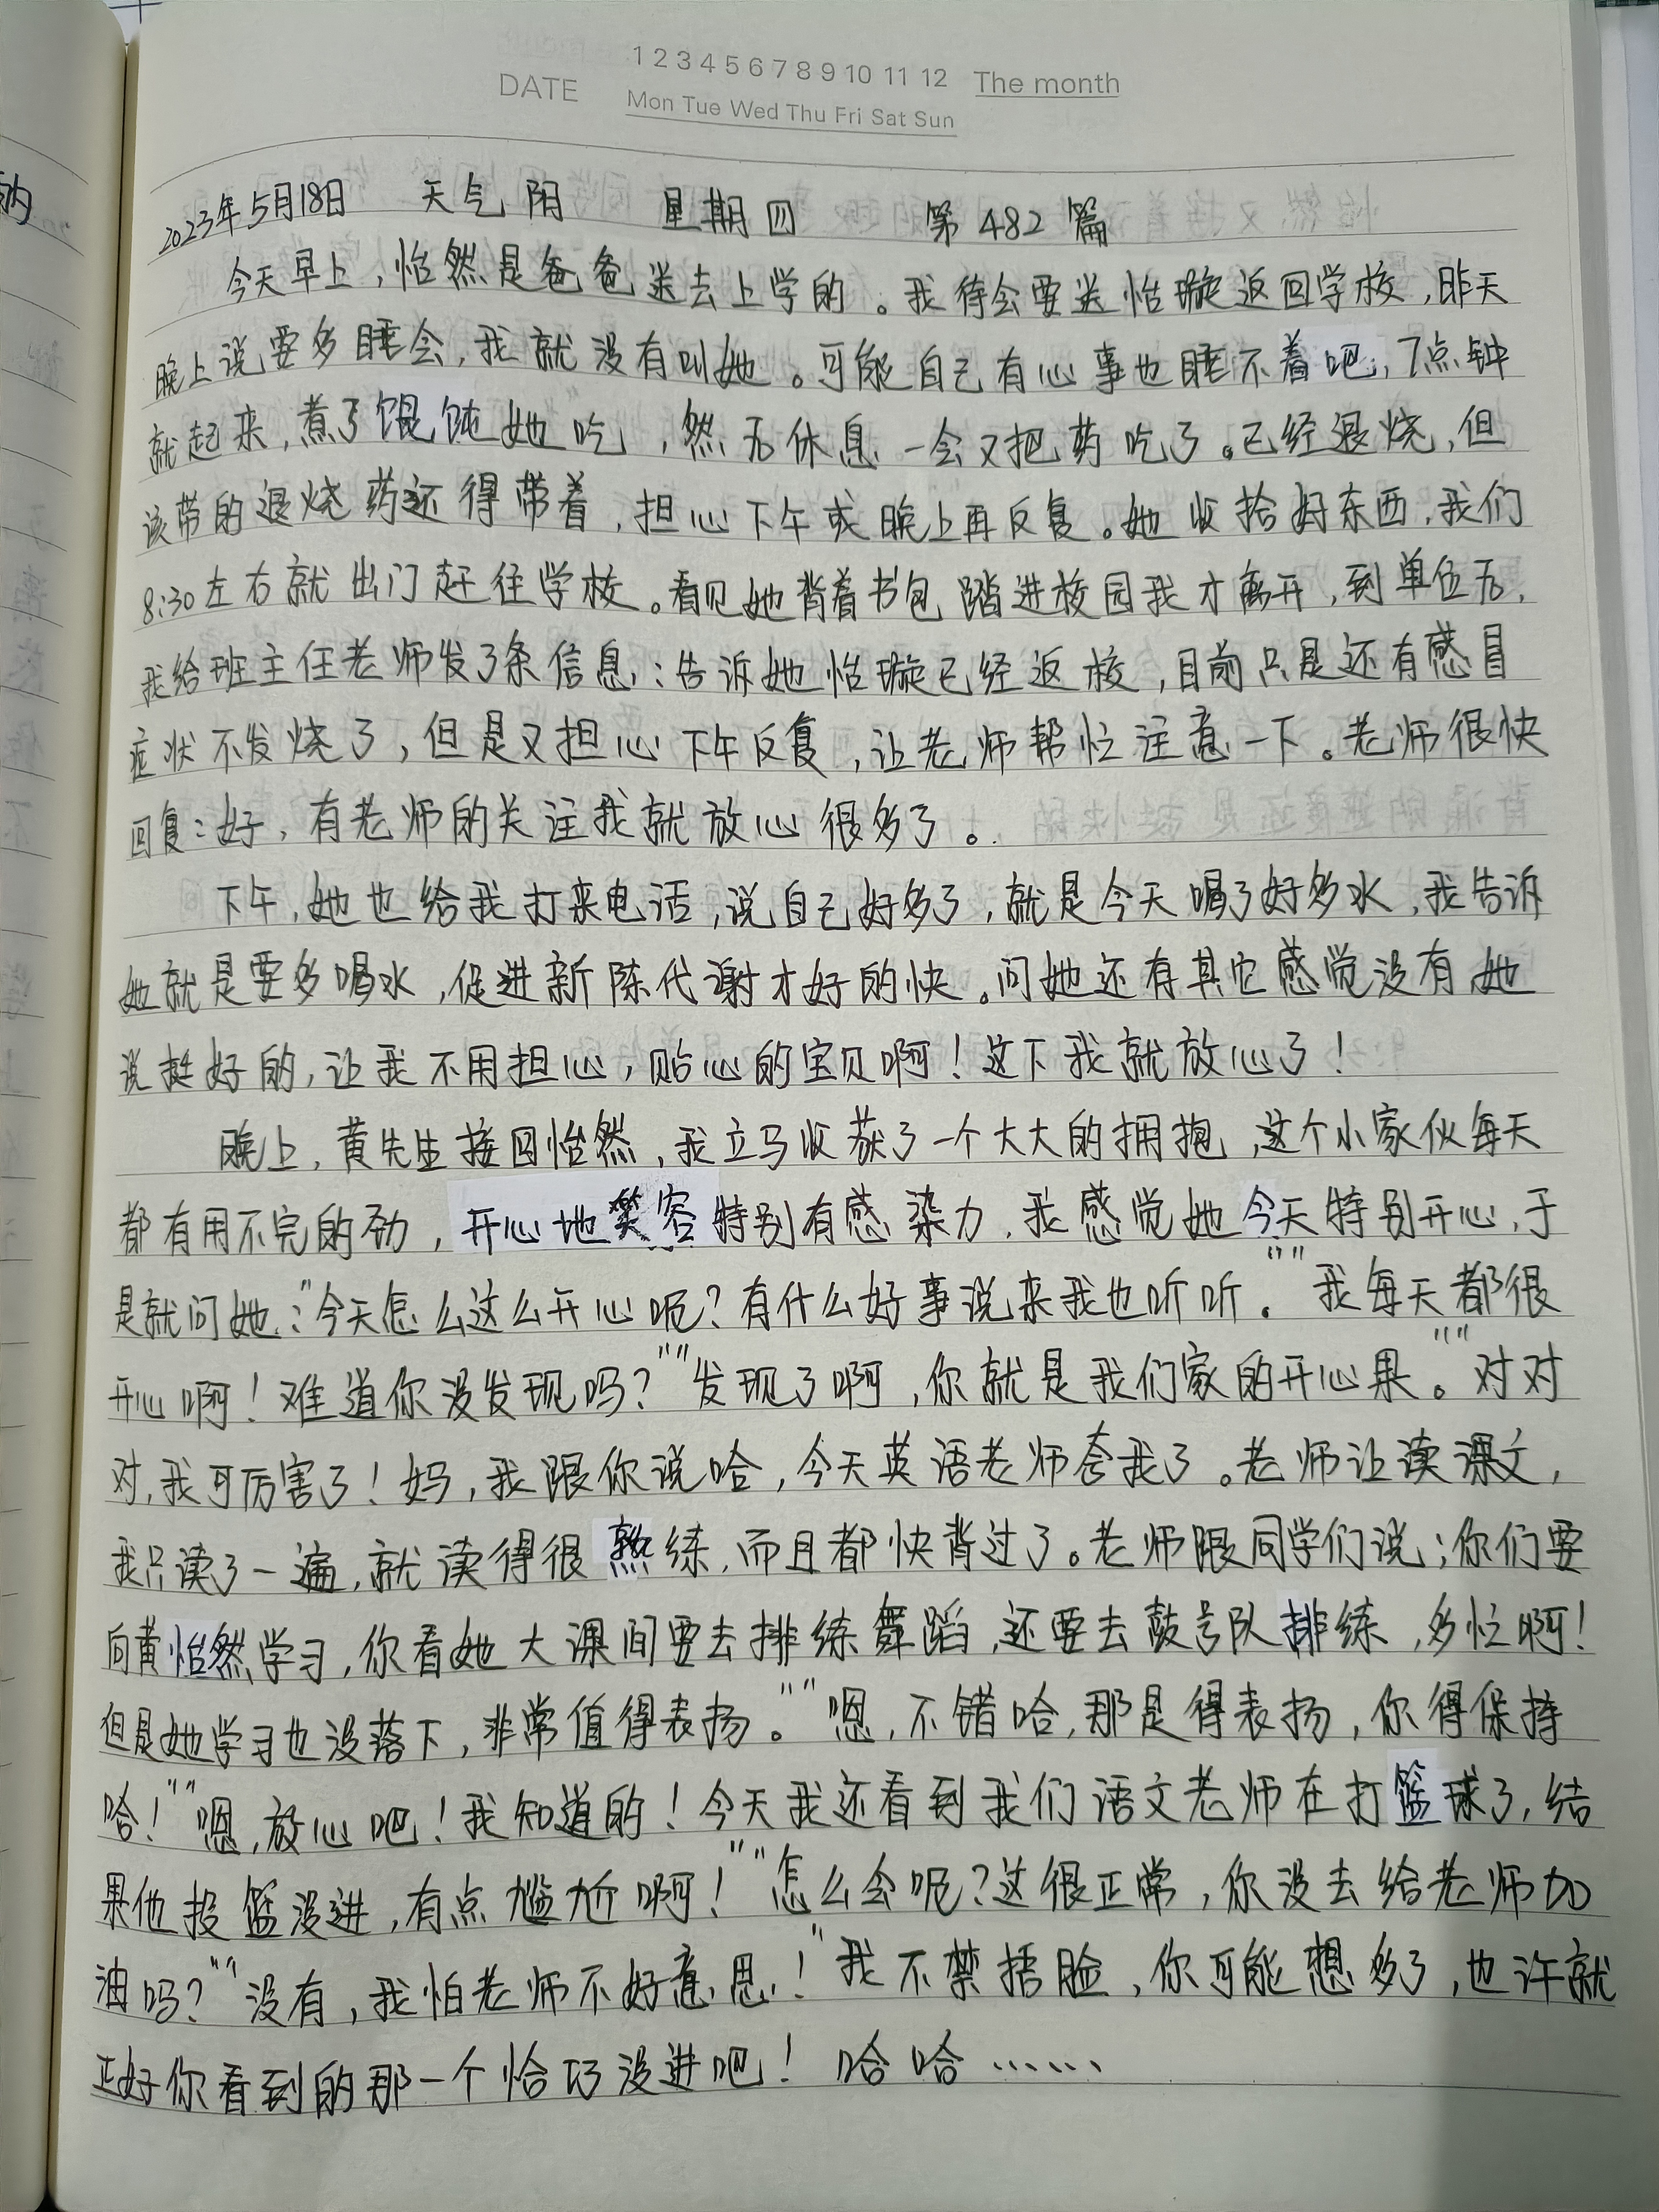 1 2 3 4 5 6 7 8 9 10 11 12 The month
DATE
Mon Tue Wed Thu Fri Sat Sun
2023年5月18日 天气 阴 星期四 第 482 篇
今天早上，怡然是爸爸送去上学的。我待会要送怡璇返回学校，昨天
晚上说要多睡会，我就没有叫她。可能自己有心事也睡不着吧，7点钟
就起来，煮了馄饨她吃，然后休息一会又把药吃了。已经退烧，但
该带的退烧药还得带着，担心下午或晚上再反复。她收拾好东西，我们
8:30左右就出门赶往学校。看见她背着书包踏进校园我才离开，到单位后，
我给班主任老师发了条信息：告诉她怡璇已经返校，目前只是还有感冒
症状不发烧了，但是又担心下午反复，让老师帮忙注意一下。老师很快
回复：好，有老师的关注我就放心很多了。
下午，她也给我打来电话，说自己好多了，就是今天喝了好多水，我告诉
她就是要多喝水，促进新陈代谢才好的快。问她还有其它感觉没有她
说挺好的，让我不用担心，贴心的宝贝啊！这下我就放心了！
晚上，黄先生接回怡然，我立马收获了一个大大的拥抱，这个小家伙每天
都有用不完的劲，开心地笑容特别有感染力，我感觉她今天特别开心，于
是就问她：“今天怎么这么开心呢？有什么好事说来我也听听。”“我每天都很
开心啊！难道你没发现吗？”“发现了啊，你就是我们家的开心果。”“对对
对，我可厉害了！妈，我跟你说哈，今天英语老师夸我了。老师让读课文，
我只读了一遍，就读得很熟练，而且都快背过了。老师跟同学们说；你们要
向黄怡然学习，你看她大课间要去排练舞蹈，还要去鼓号队排练，多忙啊！
但是她学习也没落下，非常值得表扬。”“嗯，不错哈，那是得表扬，你得保持
哈！”“嗯，放心吧！我知道的！今天我还看到我们语文老师在打篮球了，结
果他投篮没进，有点尴尬啊！”“怎么会呢？这很正常，你没去给老师加
油吗？”“没有，我怕老师不好意思！”我不禁捂脸，你可能想多了，也许就
正好你看到的那一个恰巧没进吧！哈哈……